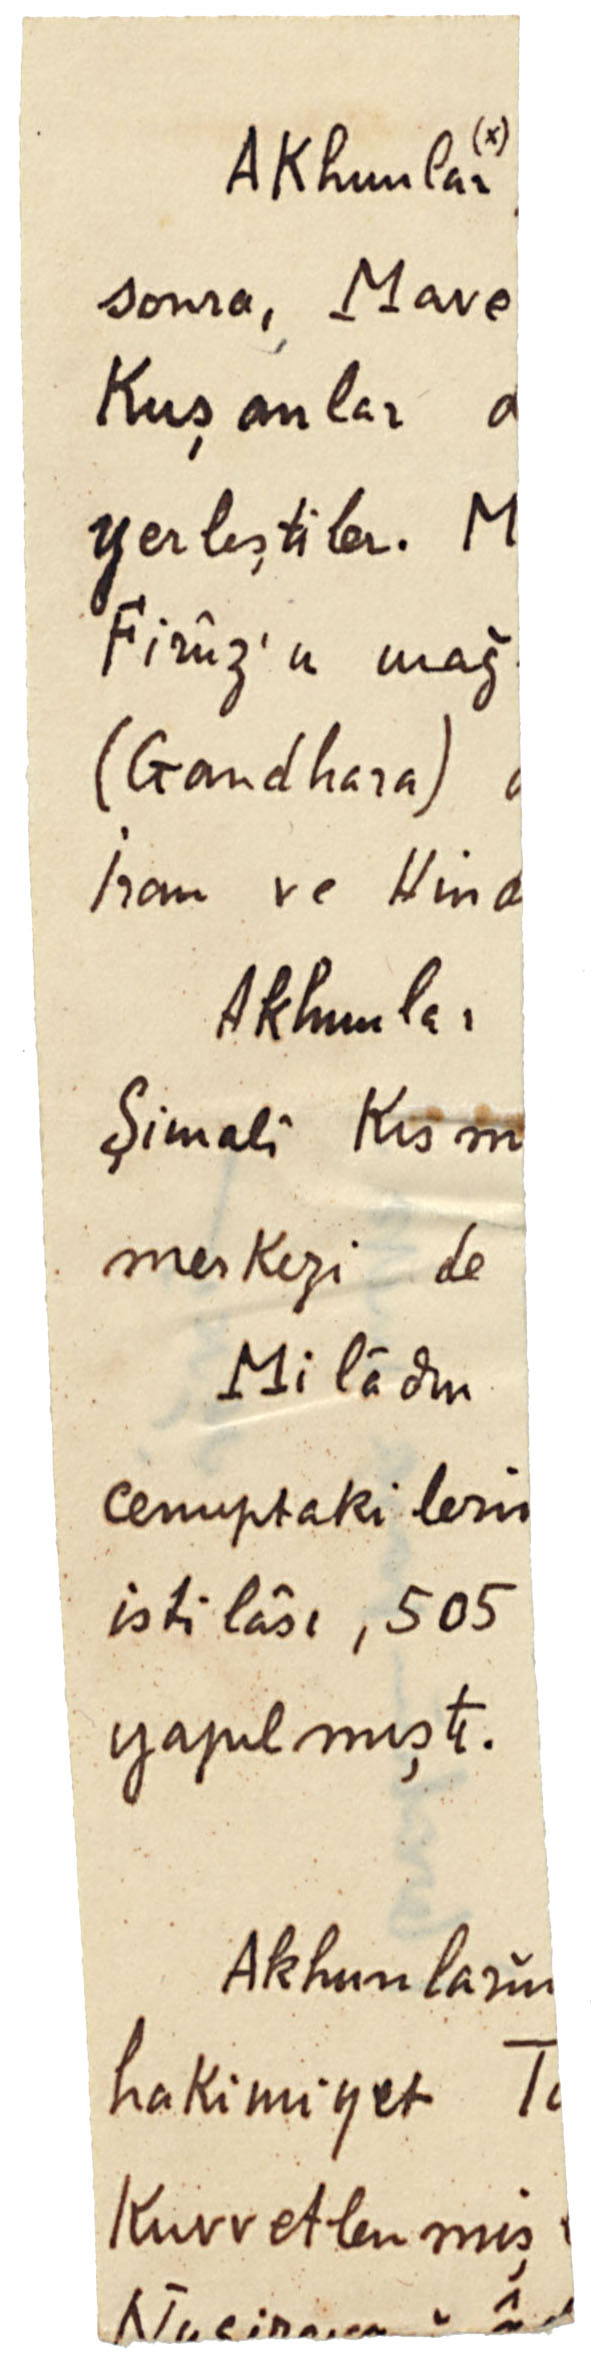 Akhunlar (x)
sonra, Mave
Kuşanlar
yerleştiler. M
Firûz'u mağ
(Gandhara)
İran ve Hind
Akhunlar
Şimalî Kısm
merkezi de
Milâdın
cenuptakilerin
istilâsı, 505
yapılmıştı.
Akhunların
hakimiyet
Kuvvetlenmiş